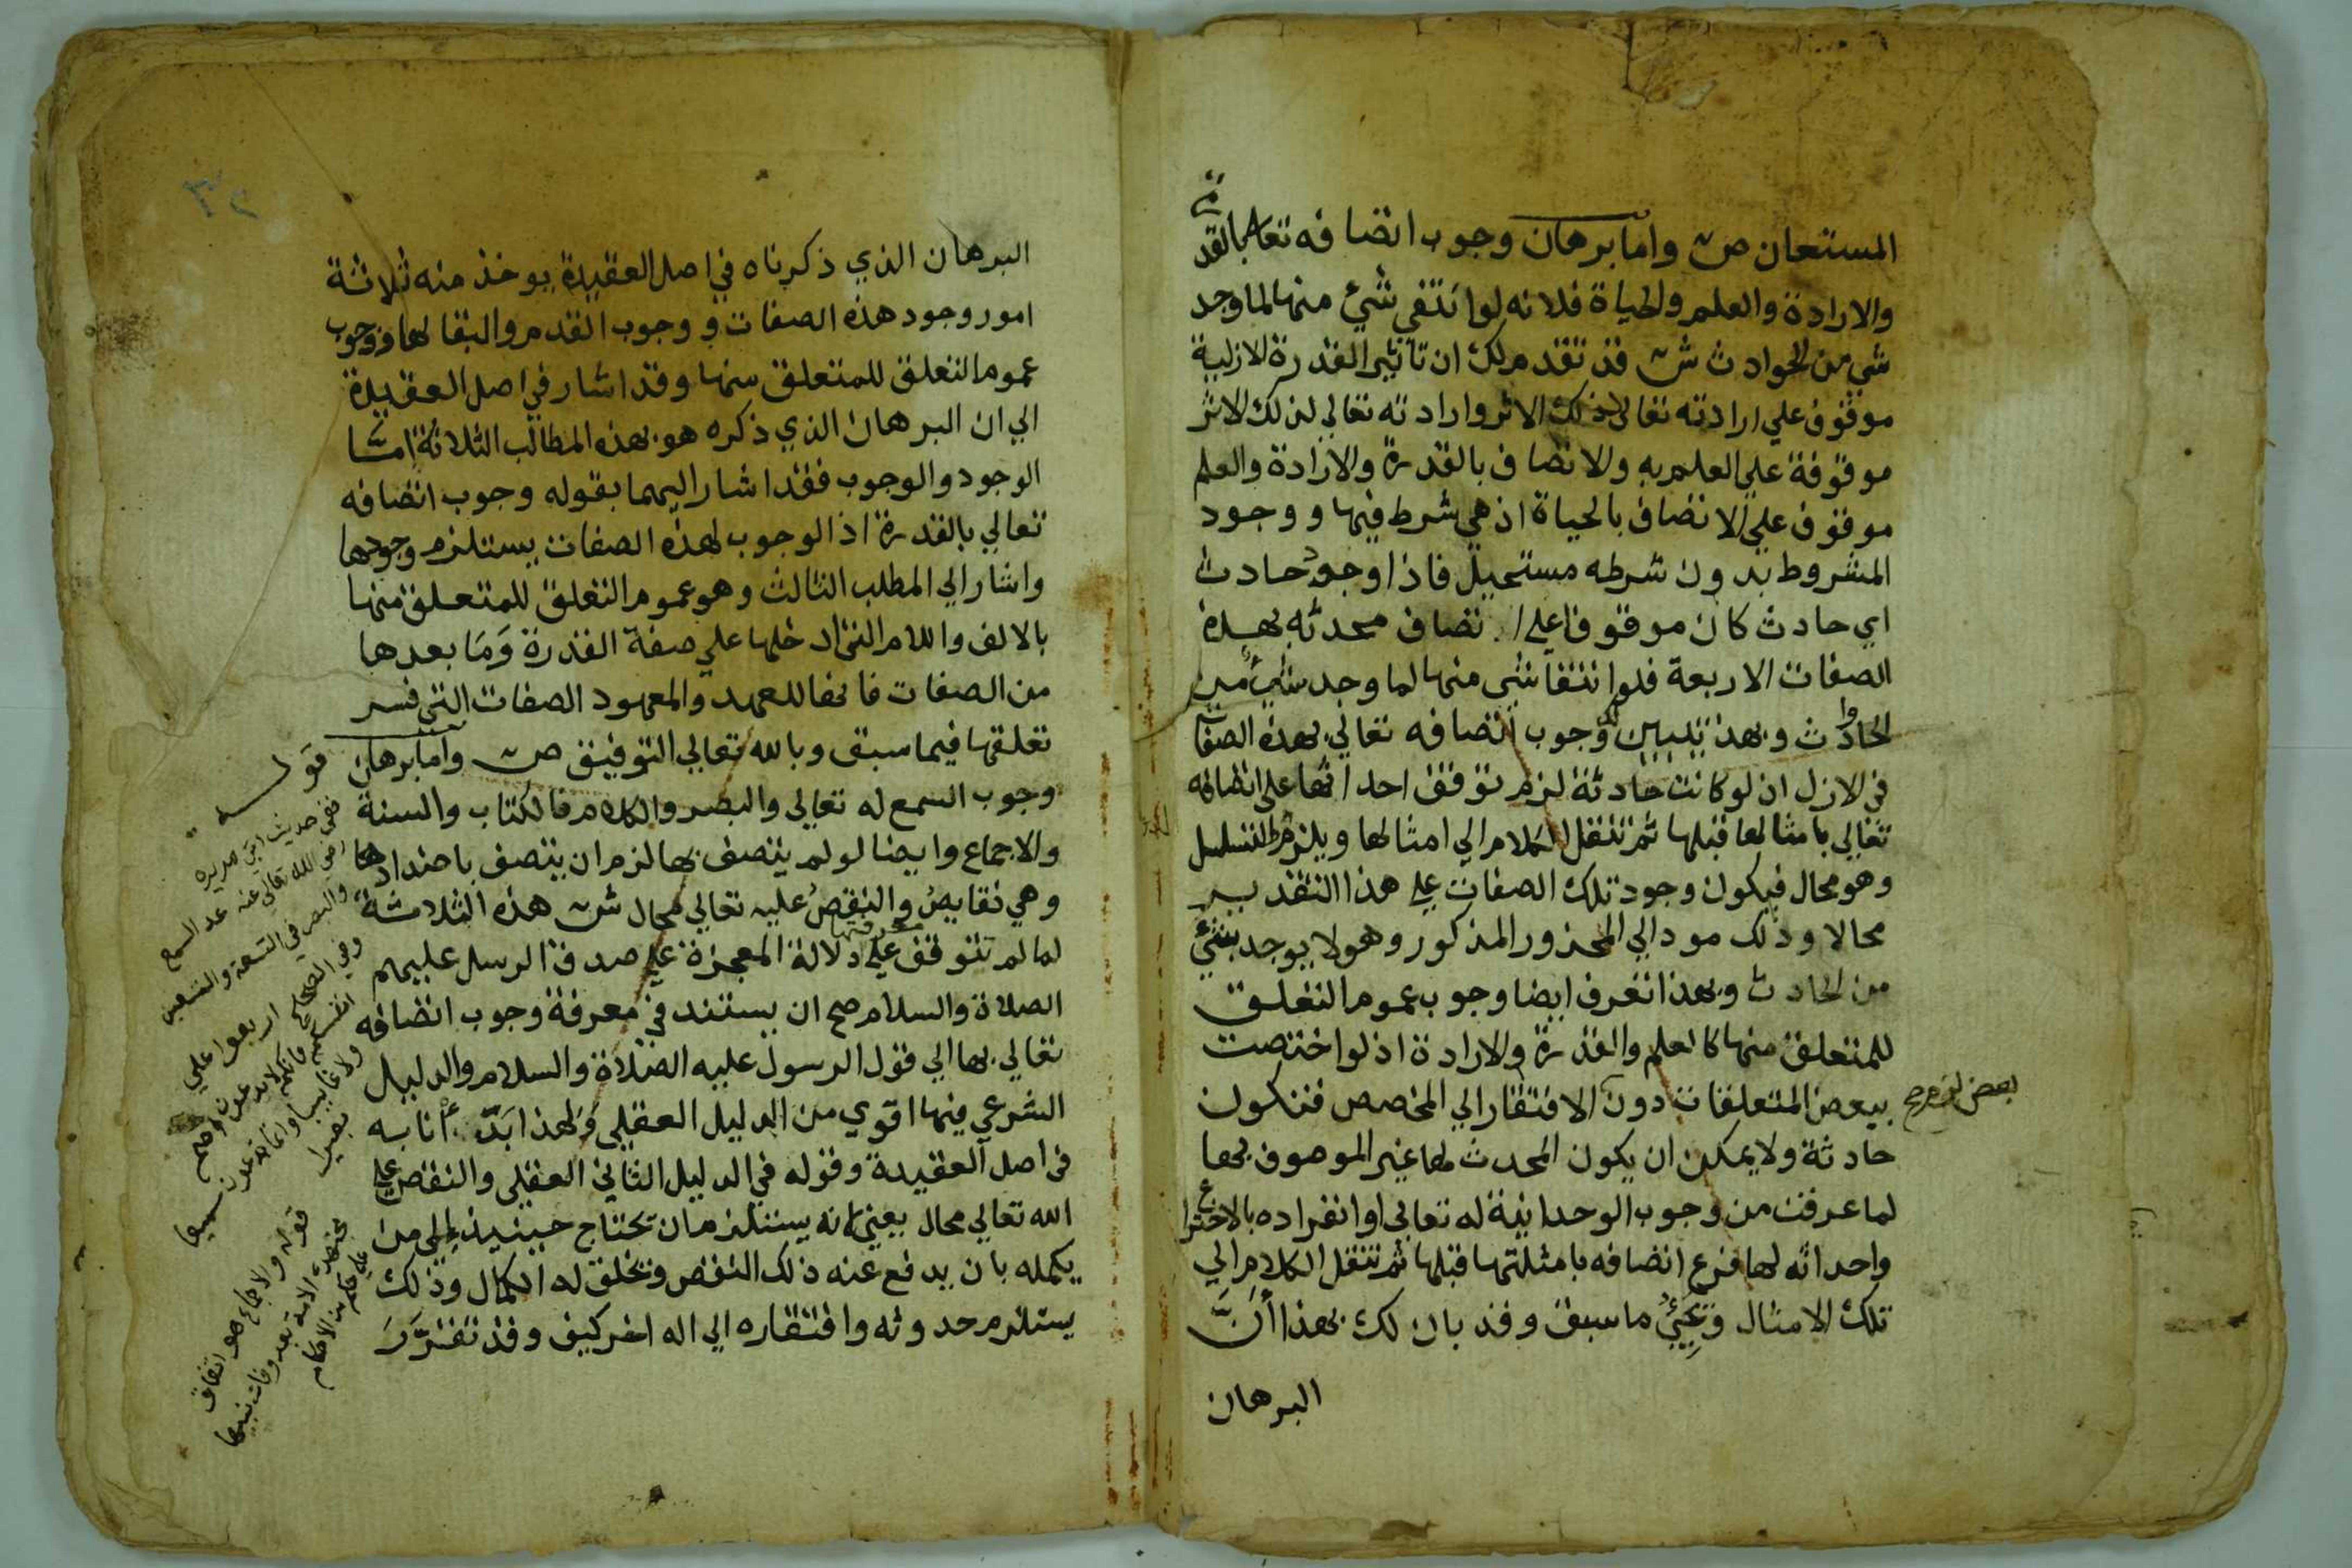 المستعان ص وامابرهان وجوب اتصافه تعالى بالقدرة
والارادة والعلم والحياة فلانه لو انتفي شيء منها لما وجد
شي من الحوادث ش قد تقدم لك ان تاثير القدرة الازلية
موقوف علي ارادته تعالى لذلك الاثر وارادته تعالي لذلك الاثر
موقوفة علي العلم به والاتصاف بالقدرة والارادة والعلم
موقوف علي الاتصاف بالحياة اذ هي شرط فيها ووجود
المشروط بدون شرطه مستحيل فاذا وجود حادث
اي حادث كان موقوفا علي اتصاف محدثه بهذه
الصفات الاربعة فلو انتفا شي منها لما وجد شيء من
الحوادث وبهذا تبين لك وجوب اتصافه تعالي بهذه الصفات
في الازل اذ لو كانت حادثة لزم توقف احداثها على اتصافه
تعالي بامثالها قبلها ثم تنقل الكلام الي امثالها ويلزم التسلسل
وهو محال فيكون وجود تلك الصفات علي هذا التقدير
محالا وذلك مودالي المحذور المذكور وهو لا يوجد شيء
من الحادث وبهذا تعرف ايضا وجوب عموم التعلق
للمتعلق منها كالعلم والقدرة والارادة اذ لو اختصت
ببعض المتعلقات دون الافتقار الي المخصص فتكون
بعض لزم صح
حادثة ولا يمكن ان يكون المحدث لها غير الموصوف بها
لما عرفت من وجوب الوحدانية له تعالي وانفراده بالاختراع
واحداثه لها فرع اتصافه بامثلتها قبلها ثم تنقل الكلام الي
تلك الامثال وَيَجِيْءُ ما سبق وقد بان لك بهذا أَنَّ
البرهان
٣٢
البرهان الذي ذكرناه في اصل العقيدة يوخذ منه ثلاثة
امور وجود هذه الصفات ووجوب القدم والبقا لها ووجوب
عموم التعلق للمتعلق منها وقد اشار في اصل العقيدة
الي ان البرهان الذي ذكره هو بهذه المطالب الثلاثة امّا
الوجود والوجوب فقد اشار اليهما بقوله وجوب اتصافه
تعالي بالقدرة اذ الوجوب لهذه الصفات يستلزم وجودها
واشار الي المطلب الثالث وهو عموم التعلق للمتعلق منها
بالالف واللام التي ادخلها علي صفة القدرة وَمَا بعدها
من الصفات فانها للعهد والمعهود الصفات التي فسر
تعلقها فيما سبق وبالله تعالي التوفيق ص وامابرهان
وجوب السمع له تعالي والبصر والكلام فالكتاب والسنة
والاجماع وايضا لو لم يتصف بها لزم ان يتصف باضدادها
وهي نقايصُ والنقصُ عليه تعالي محال ش هذه الثلاثة
لما لم تتوقف علي معرفتها دلالة المعجزة علي صدق الرسل عليهم
الصلاة والسلام صح ان يستند في معرفة وجوب اتصافه
تعالي بها الي قول الرسول عليه الصلاة والسلام والدليل
الشرعي فيها اقوي من الدليل العقلي وَلهذا بَدَأنا به
في اصل العقيدة وقوله في الدليل الثاني العقلي والنقص علي
الله تعالي محال يعني لانه يستلزم ان تحتاج حينيذ الي من
يكمله بان يدفع عنه ذلك النقص ويخلق له الكمال وذلك
يستلزم حدوثه وافتقاره الي اله اخر كيف وقد تقرَّرَ
قوله
ففي حديث ابي هريره
رضي الله تعالي عنه عد السمع
والبصر في التسعة والتسعين
وفي الصحاح اربعوا علي
انفسكم فانكم لا تدعون اصم
ولا غايبا وانما تدعون سميعا
بصيرا
قوله والاجماع هو اتفاق
مجتهدي الامة بعد وفات نبيها
علي حكم من الاحكام